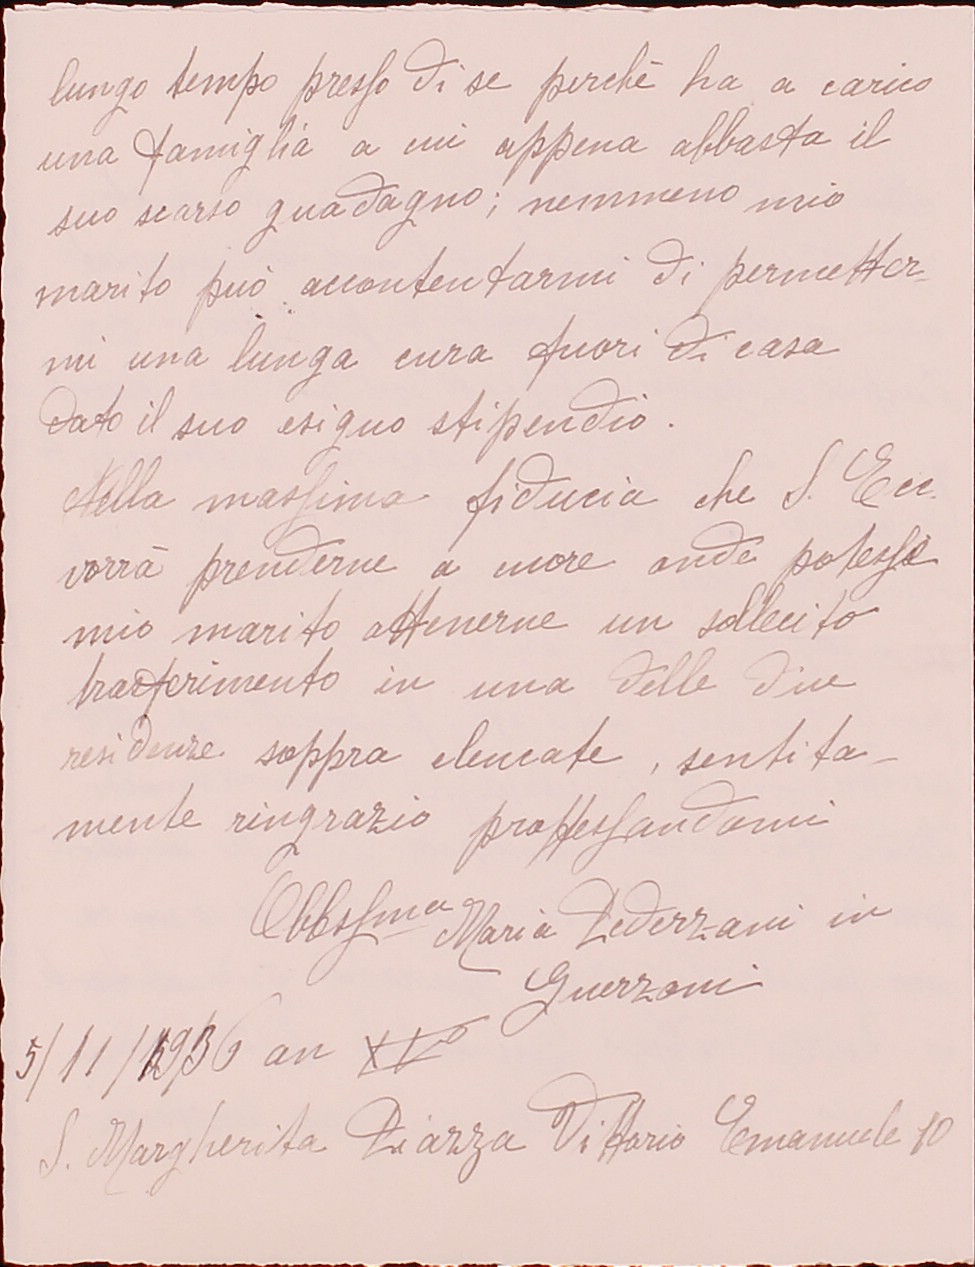 lungo tempo presso di se perchè ha a carico
una famiglia a cui appena abbasta il
suo scarso guadagno; nemmeno mio
marito può accontentarmi di permetter-
mi una lunga cura fuori di casa
dato il suo esiguo stipendio.
Nella massima fiducia che S. Ecc.
vorrà prenderne a cuore onde potesse
mio marito ottenerne un sollecito
trasferimento in una delle due
residenze soppra elencate, sentita-
mente ringrazio proffessandomi
Obbssma Maria Pederzani in
Guerzoni
5/11/1936 an XV°
S. Margherita Piazza Vittorio Emanuele 10